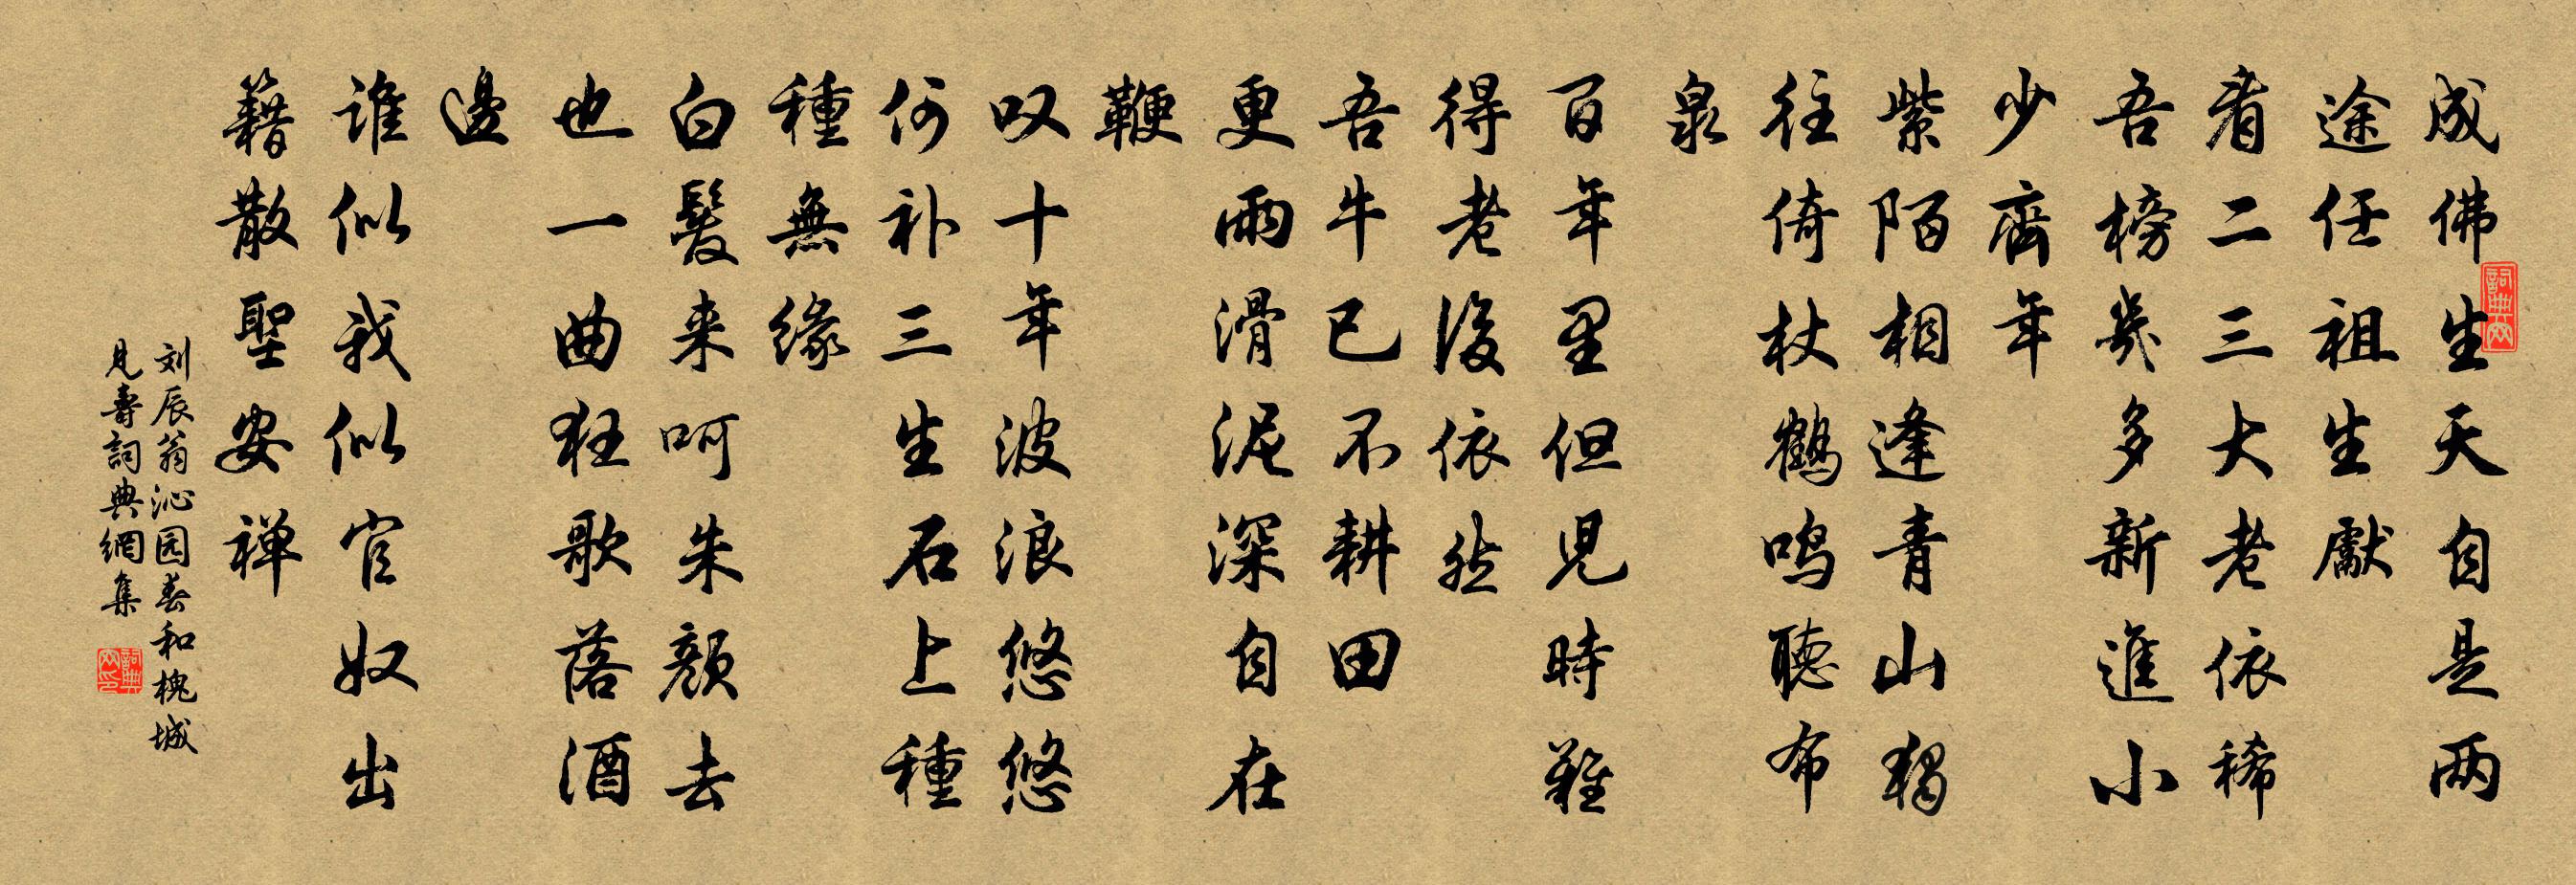 成佛生天自是两
途任祖生獻
看二三大老依稀
吾榜幾多新進小
少齊年
紫陌相逢青山獨
往倚杖鶴鸣聽布
泉
百年里但見時難
得老後依然
吾牛已不耕田
更雨滑泥深自在
鞭
叹十年波浪悠悠
何补三生石上種
種無緣
白髮来呵朱顏去
也一曲狂歌落酒
邊
谁似我似官奴出
籍散聖安禅
刘辰翁沁园春和槐城
見壽詞典網集
詞典網
詞典網印